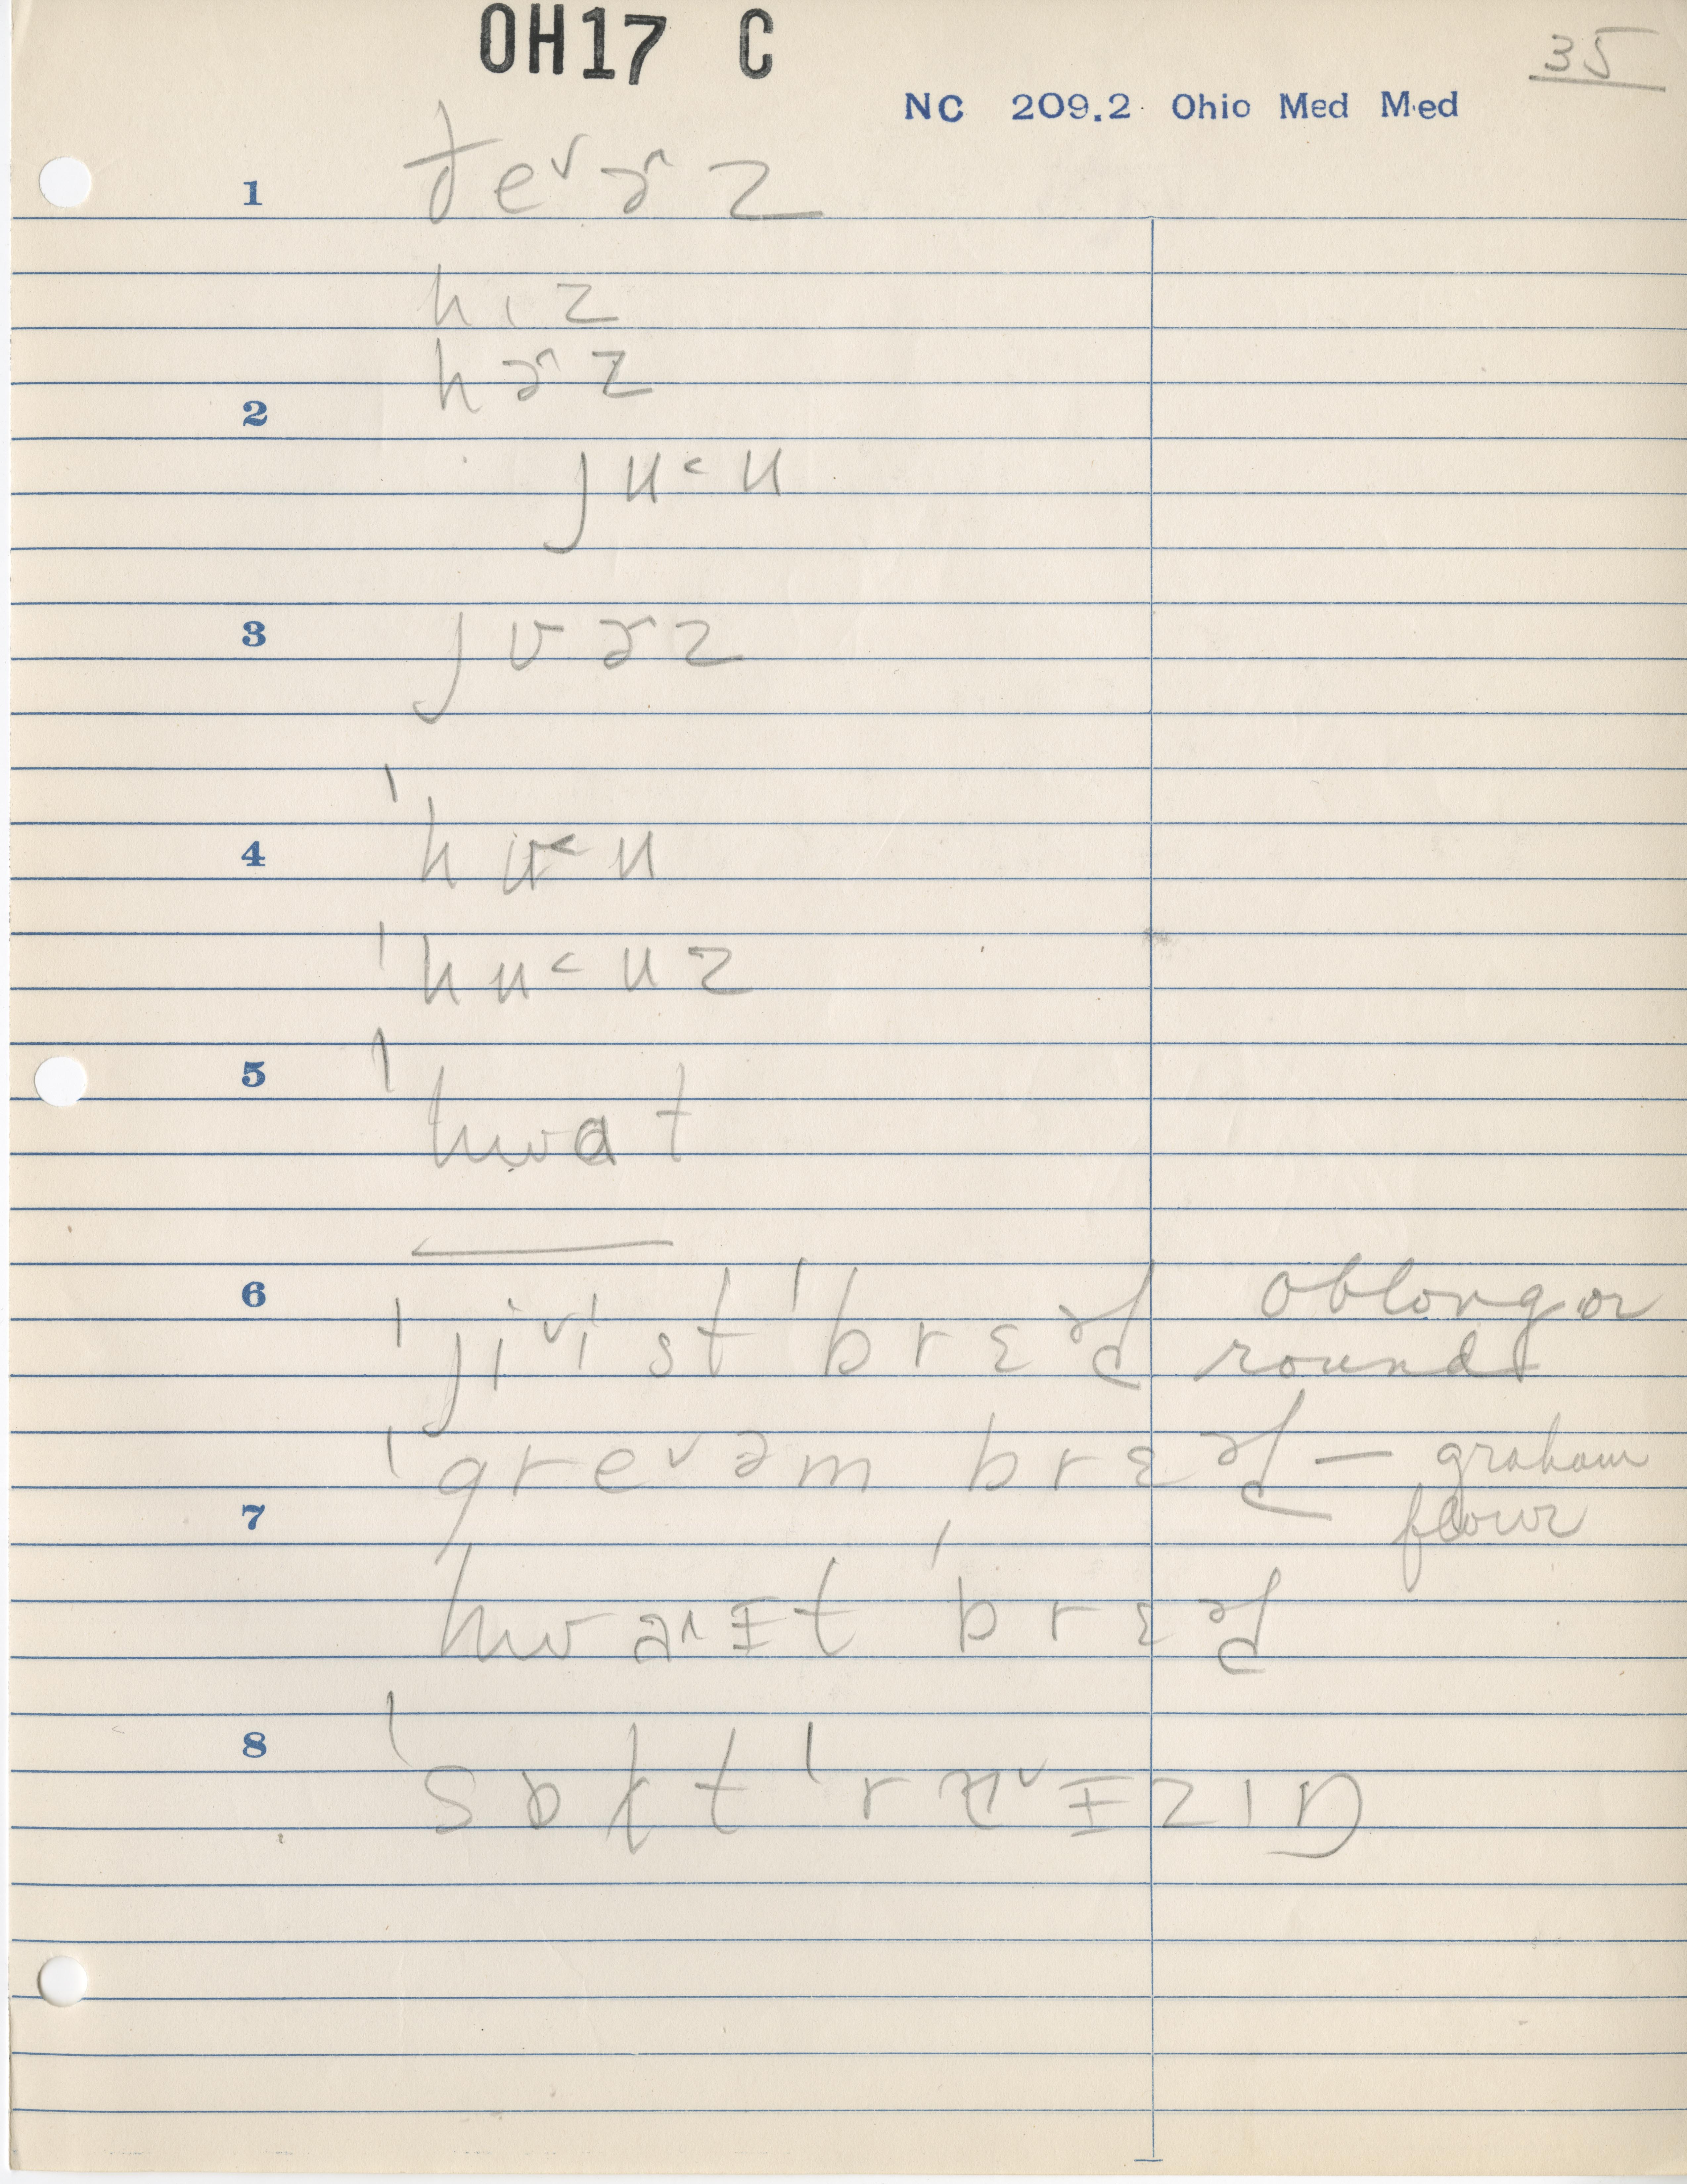 OH17 C
35
NC 209.2 Ohio Med Med
1 ðeᵛɚz
hɪz
hɚz
2
ju˂u
3 jʊɚz
4 ˈhu˂u
ˈhu˂uz
5 ˈhwɑt
6 ˈjiᵛist ˈbrɛᵊd̥ oblong or
round
ˈgreᵛəm ˌbrɛᵊd̥ — graham
7 flour
hwaᶺɪt ˈbrɛᵊd̥
8 ˈsɒft ˈraᵛɪzɪŋ